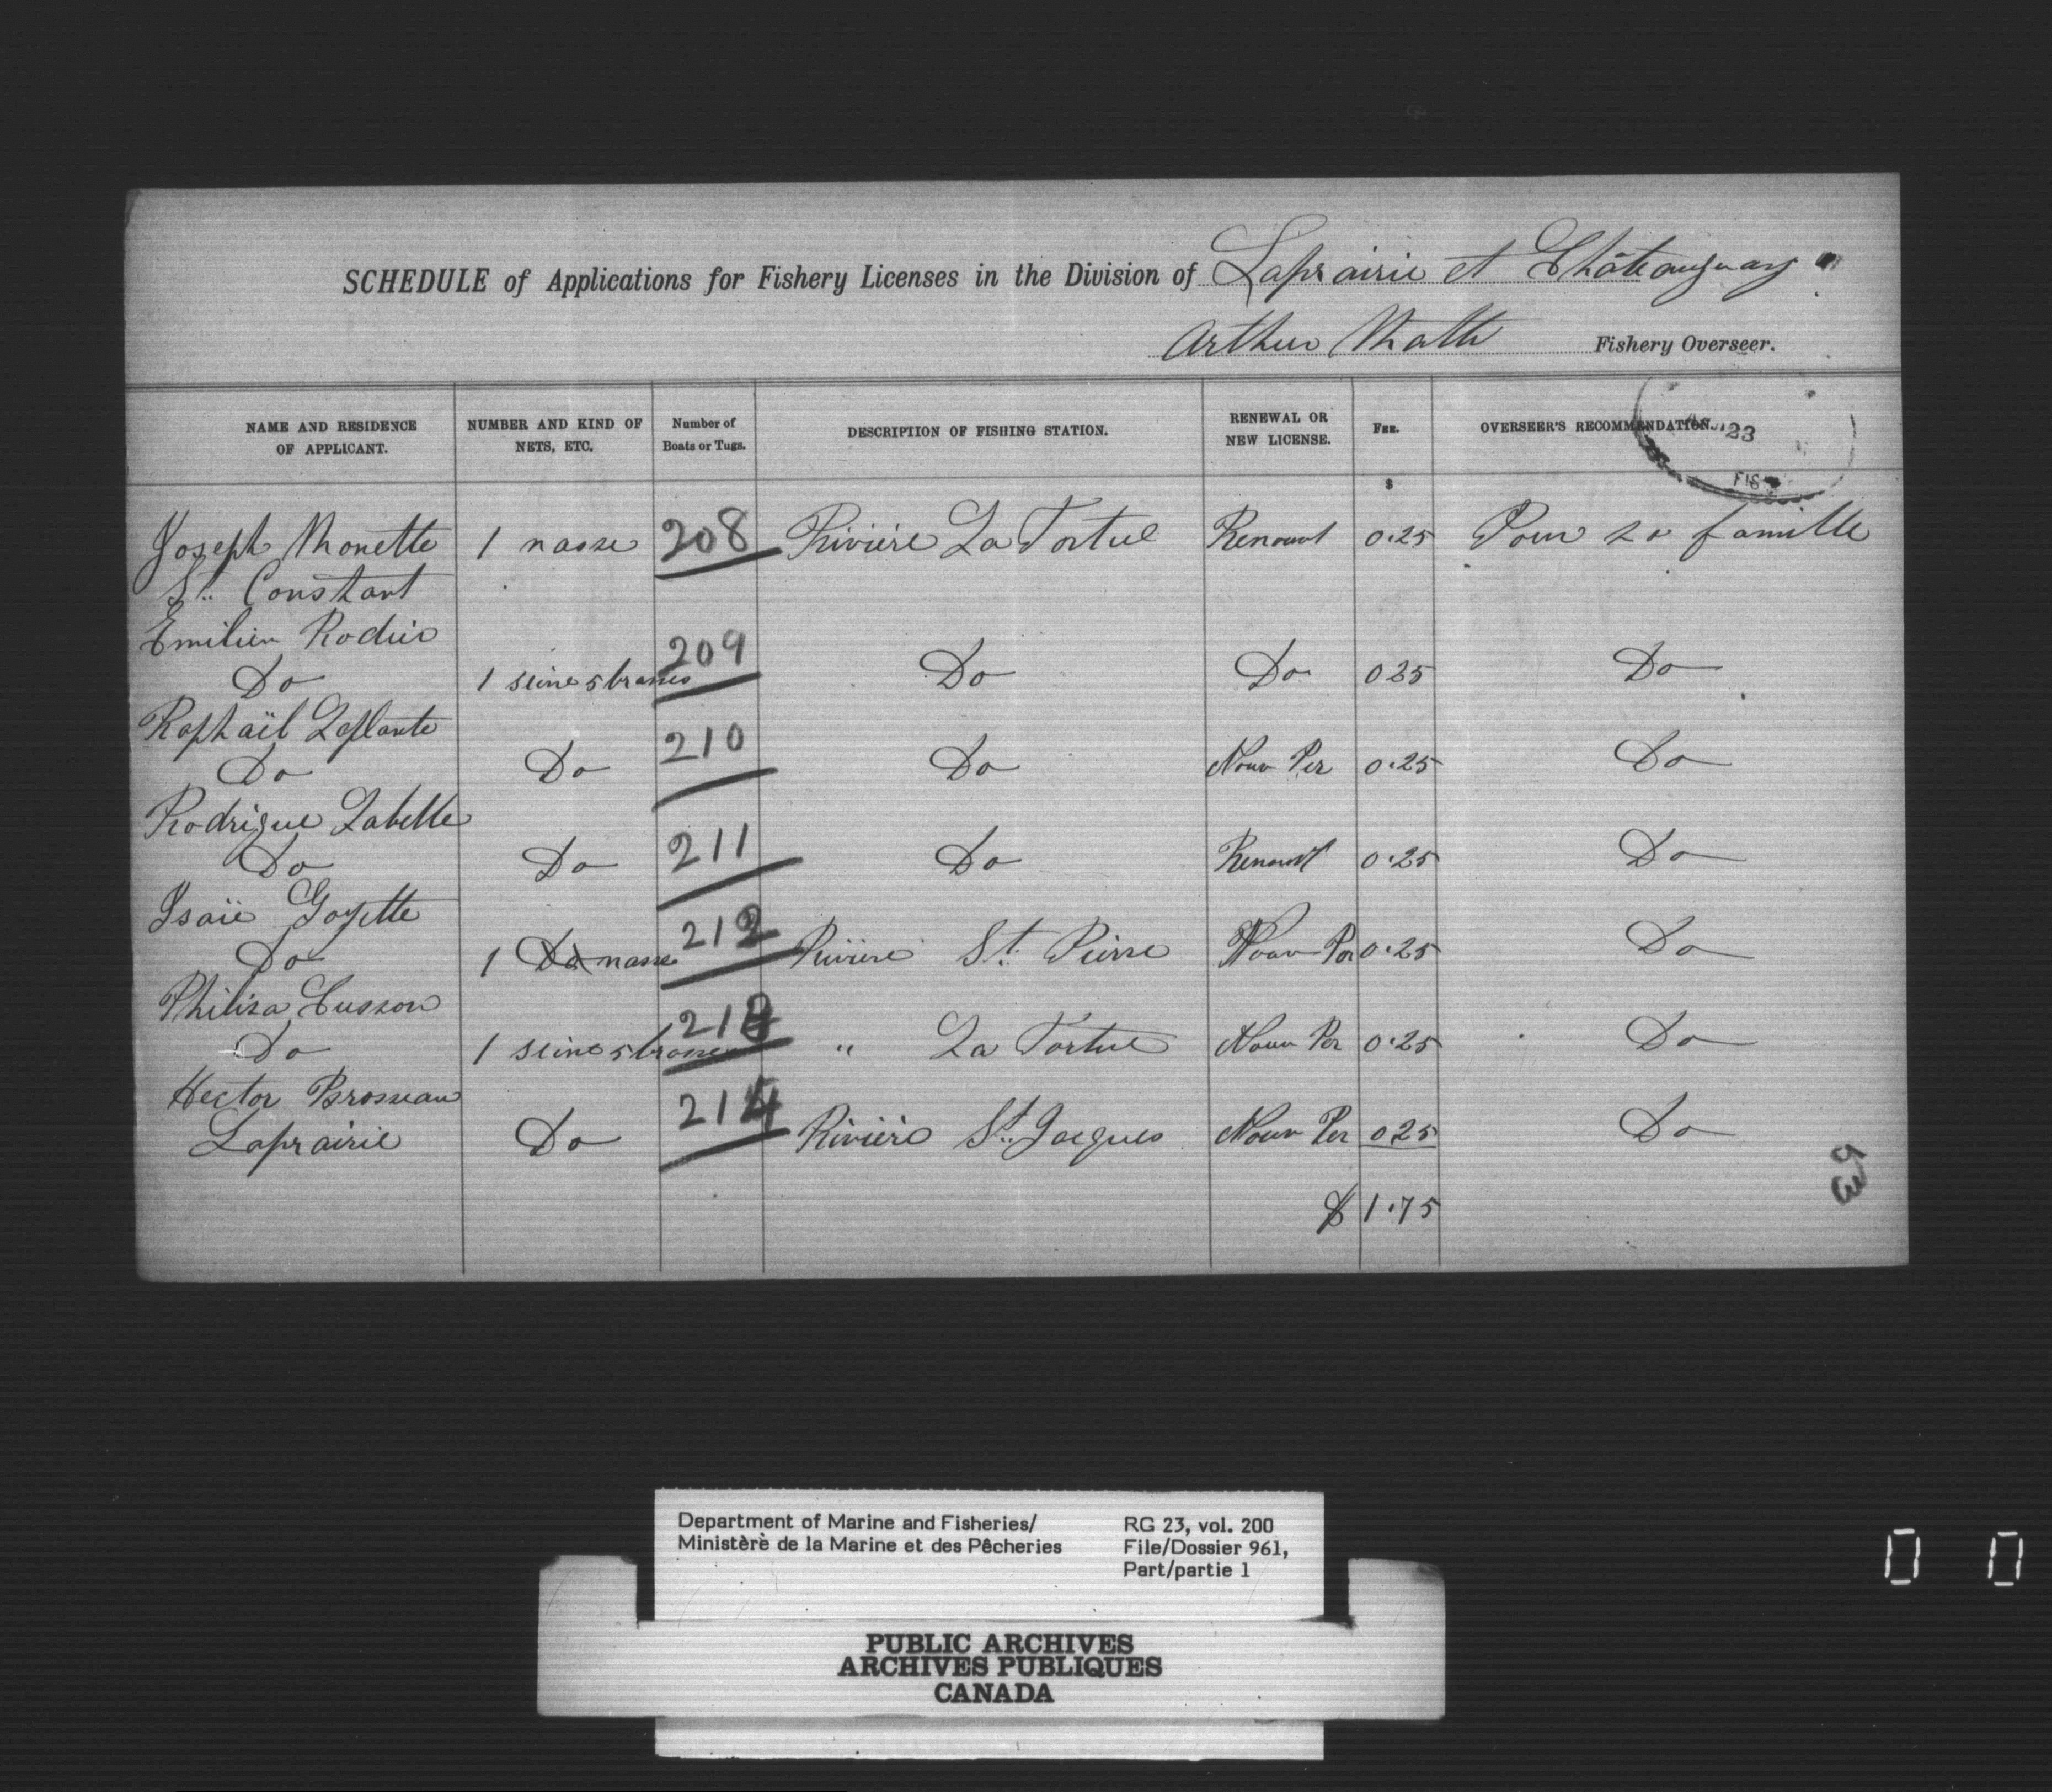 SCHEDULE of Applications for Fishery Licenses in the Division of Laprairie et Châteauguay
Arthur Fishery Overseer.
NAME AND RESIDENCE OF APPLICANT. NUMBER AND KIND OF NETS, ETC. Number of Boats or Tugs. DESCRIPTION OF FISHING STATION. RENEWAL OR NEW LICENSE. FEE. OVERSEER'S RECOMMENDATION.
23
FIS
$
Joseph Monette 1 nasse 208 Rivière La Tortue Renouvt 0.25 Pour sa famille
St. Constant
Emilien Rodier
Do 1 seine 5 brasses 209 Do Do 025 Do
Raphaël Laplante
Do Do 210 Do Nouv Per 0.25 Do
Rodrigue Labelle
Do Do 211 Do Renouvt 0.25 Do
Isaïe Goyette
Do 1 Do nasse 212 Rivière St. Pierre Nouv Per 0.25 Do
Philiza Cusson
Do 1 seine 5 brasses 213 " La Tortue Nouv Per 0.25 Do
Hector Brosseau
Laprairie Do 214 Rivière St. Jacques Nouv Per 025 Do
$ 1.75
53
Department of Marine and Fisheries/ RG 23, vol. 200
Ministère de la Marine et des Pêcheries File/Dossier 961,
Part/partie 1
PUBLIC ARCHIVES
ARCHIVES PUBLIQUES
CANADA
0 0